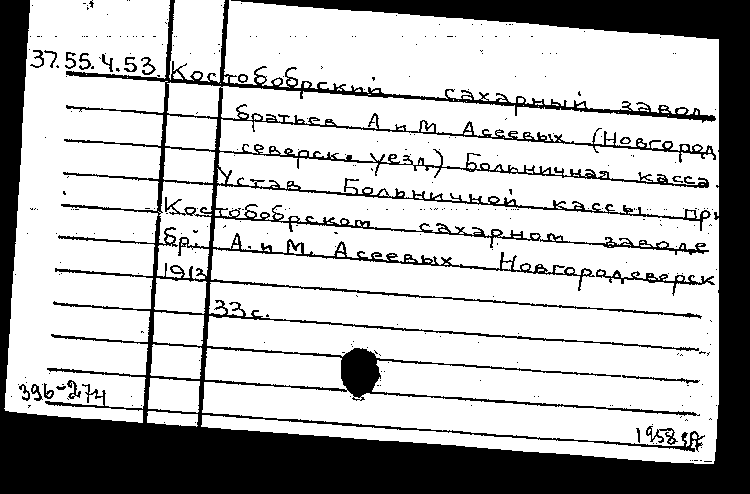 37.55.4.53. Костобобрский сахарный завод
братьев А и М Асеевых (Новгород
северск. уезд) Больничная касса.
Устав Больничной кассы при
Костобобрском сахарном заводе
бр. А. и М. Асеевых. Новгородсеверск
1913
33 с.
396-274